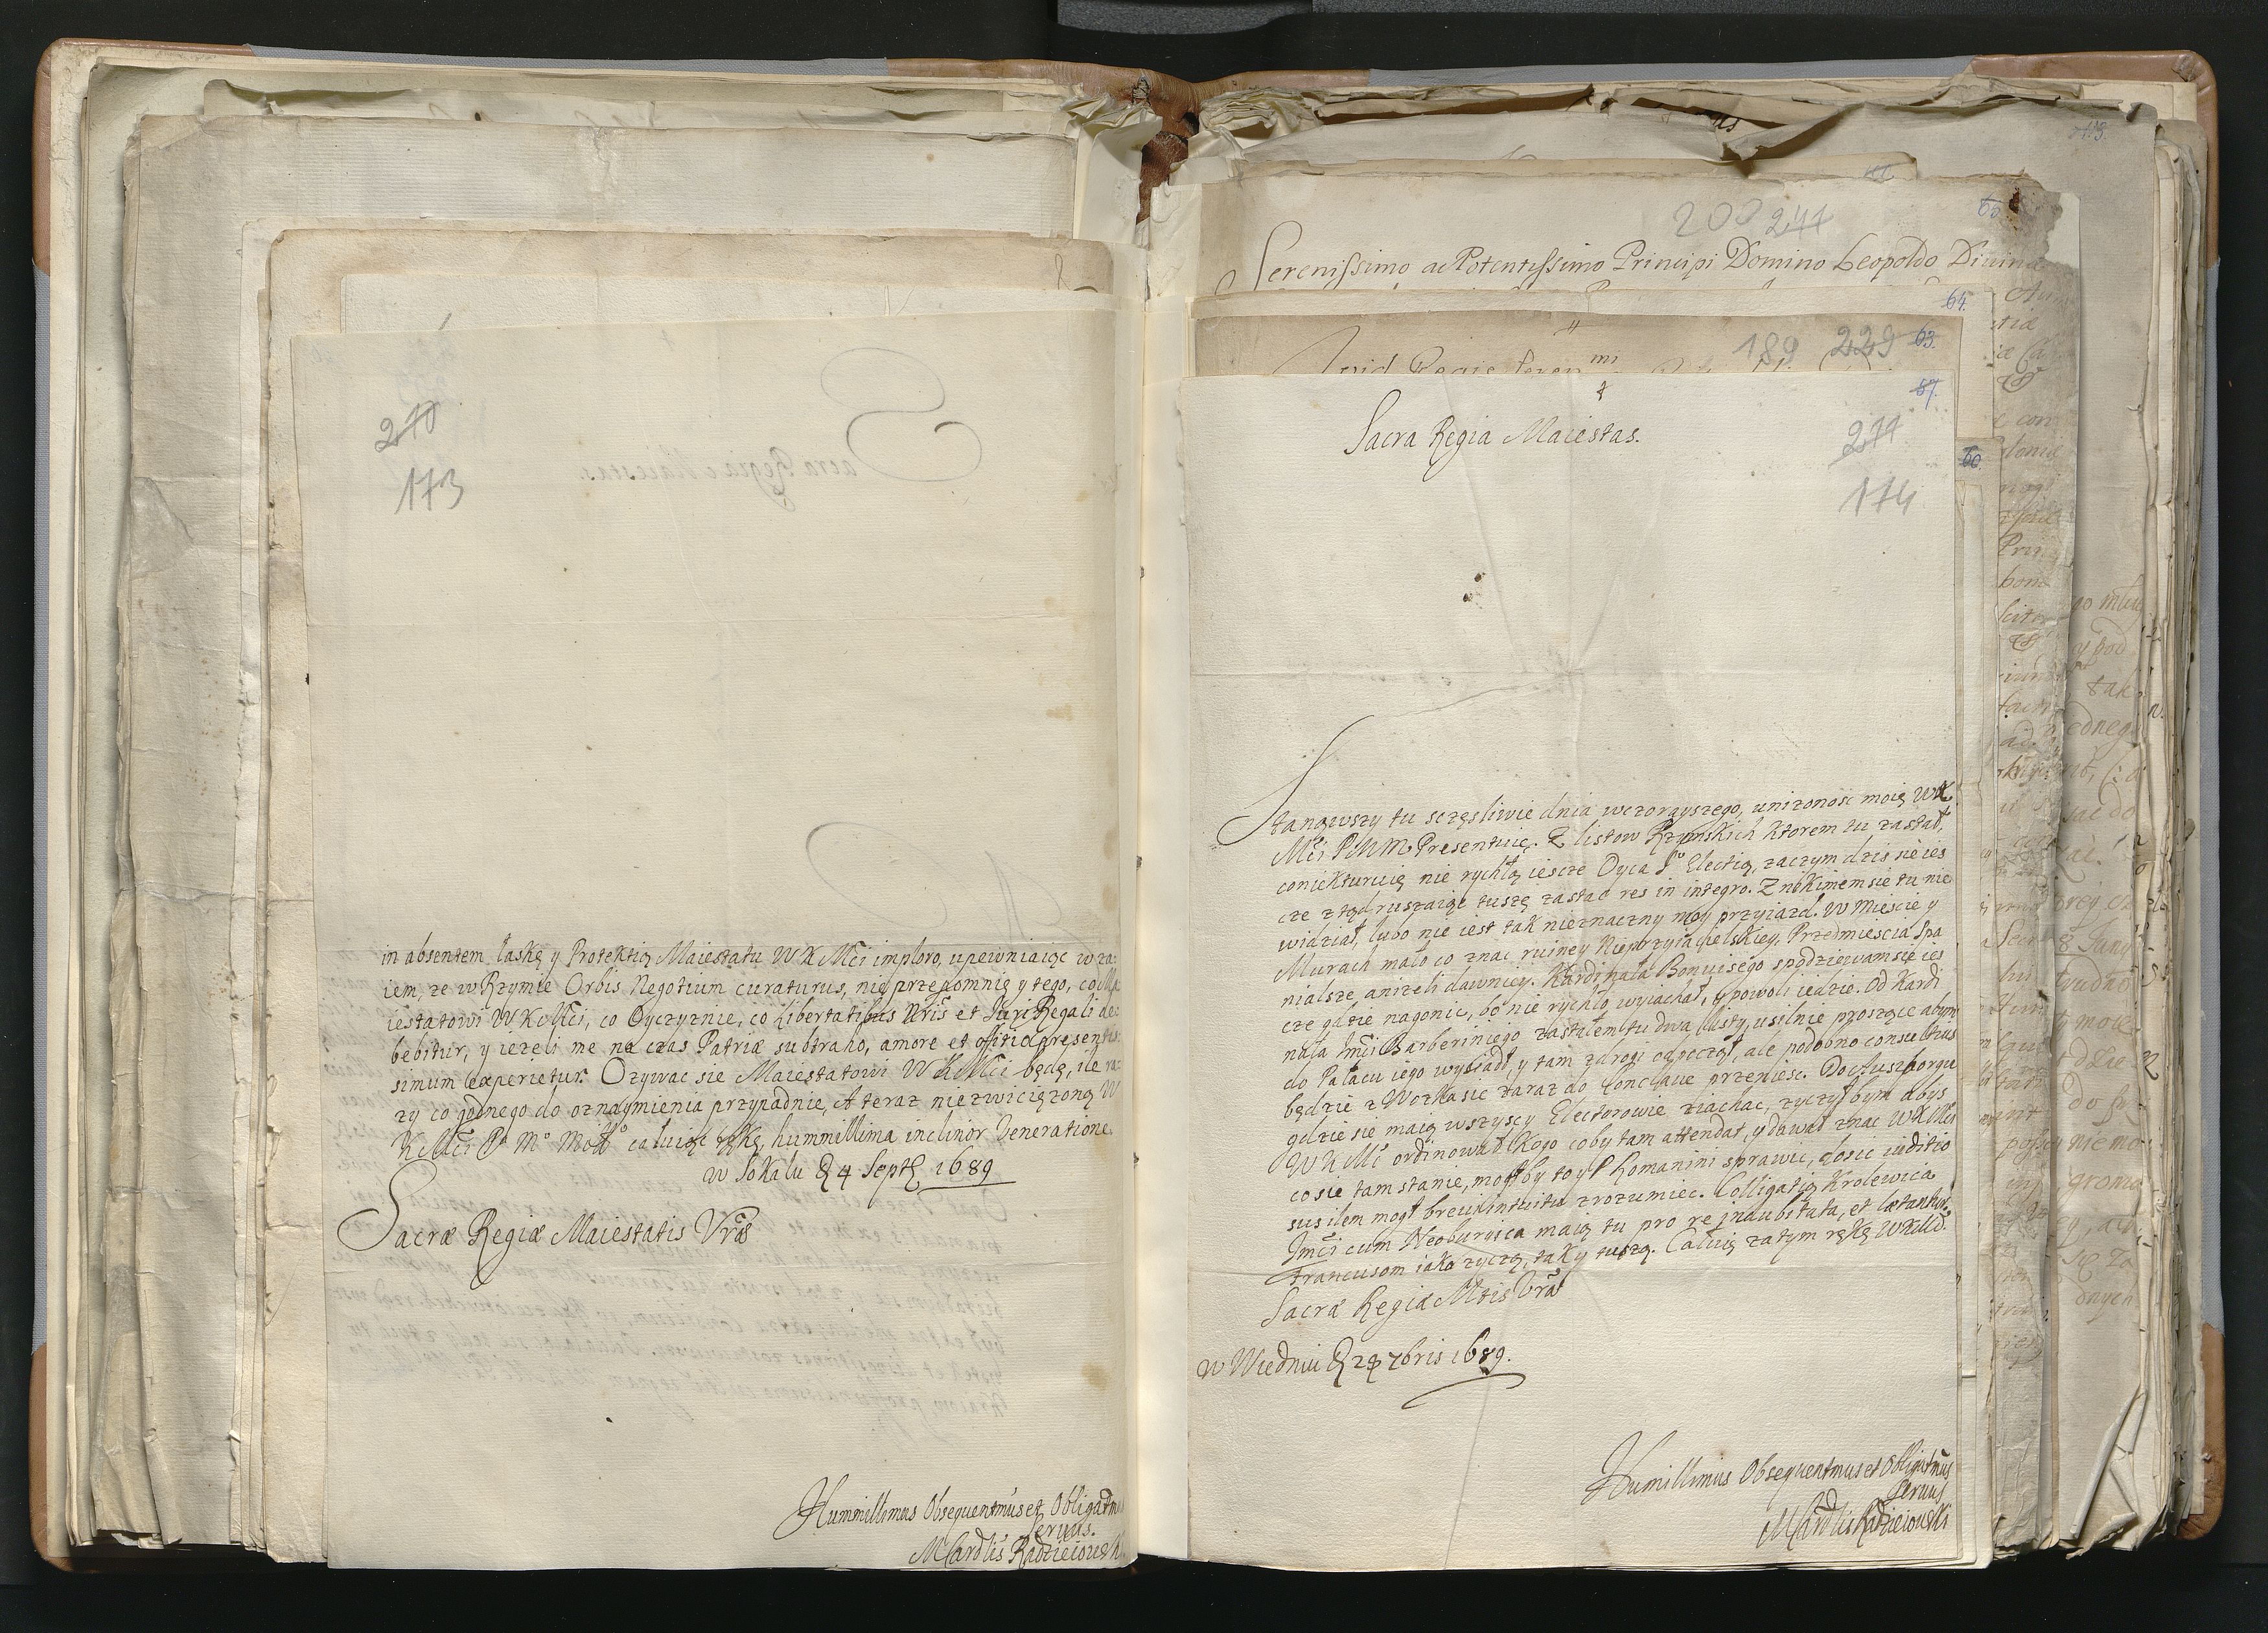 210
173
in absentem, łaskę y Protektią Maiestatu WKMći imploro, upewniaiąc wza:
iem, że w Rzymie Orbis Negotium curaturus, nie przepomnię y tego, co Ma
iestatowi WKMći, co Oyczyznie, co Libertatibus Nris et Juri Regali de:
bebitur, y ieżeli me na czas Patriæ subtraho, amore et officio præsentis:
simum experietur. Ozywac sie Maiestatowi WKMći będę, ile ra:
zy co godnego do oznaymienia przypadnie, A teraz niezwiciężoną W
KMći Pa Mo całuiąc rękę, hummillima inclinor Veneratione.
w Sokalu 4 Septb 1689
Sacræ Regiæ Maiestatis Vræ
Hummillimus Obsequentmus et Obligatmus
Servus.
MCardlis Radzieiowski
200 241
60.
Serenissimo ac Potentissimo Principi Domino Leopoldo Divina
64.
189 229 63.
57.
Sacra Regia Maiestas.
211
174
60
Stanąwszy tu sczęsliwie dnia wczorayszego, unizonosc moię WK
Mći PMM Presentuię. Z listow Rzymskich ktorem tu zastał,
coniekturuię nie rychłą iescze Oyca So Electią, zaczym dzis sie ies
cze ztąd ruszaiąc tuszę zastac res in integro. Znikimem sie tu nie
widział, lubo nie iest tak nieznaczny moy przyiazd. W Miescie y
Murach mało co znac ruiney Nieprzyiacielskiey. Przedmiescia spa
nialsze anizeli dawniey. Kardynała Bonuisego spodziewam sie ies
cze gdzie nagonic, bo nie rychło wyiachał, y powoli iedzie. Od Kardi
nała Jmći Barberiniego zastałem tu dwa listy, usilnie proszące abym
do Pałacu iego wysiadł, y tam zdrogi odpoczął, ale podobno consultius
będzie z Wozka sie zaraz do Conclaue przeniesc. Do Auszborgu
gdzie sie maią wszyscy Electorowie ziachac, zyczył bym abys
WKMć ordinował kogo coby tam attendał, y dawał znac WKMći
co sie tam stanie, mogłby to y P Romanini sprawic, dosic iuditio
sus ilem mogł breui intuitu zrozumiec. Colligatią Krolewica
Jmći cum Neoburgica maią tu pro re indubitata, et lætantur.
Francusom iako zyczą, tak y tuszą. Całuię zatym rękę WKMći.
Sacræ Regiæ Mtis Vræ
w Wiedniu 24 7bris 1689.
Humillimus Obsequentmus et Obligatmus
Servus
MCardlis Radzieiowski